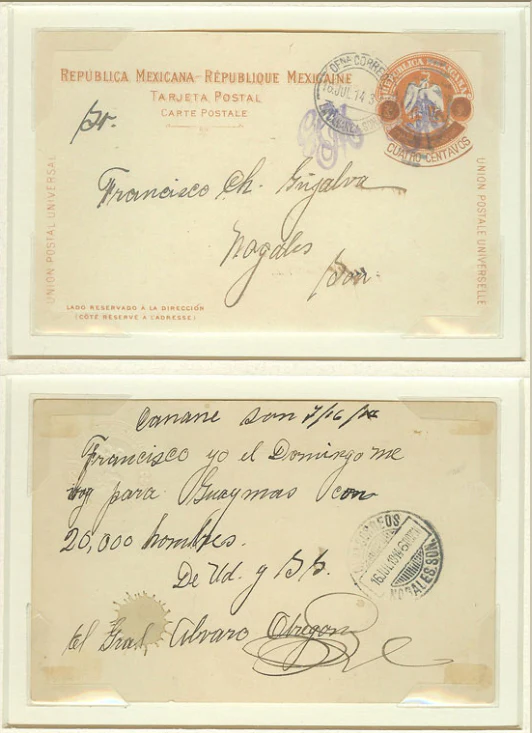 REPÚBLICA MEXICANA - RÉPUBLIQUE MEXICAINE
TARJETA POSTAL
CARTE POSTALE
OFNA CORREOS
16.JUL.14
REPUBLICA MEXICANA
CUATRO CENTAVOS
UNION POSTAL UNIVERSAL
UNION POSTALE UNIVERSELLE
Sr.
Francisco Ch. Grijalva
Nogales
Son.
LADO RESERVADO À LA DIRECCIÓN
(CÔTÉ RÉSERVÉ A L'ADRESSE)
Canane Son 7/16/14
Francisco yo el Domingo me
voy para Guaymas con
20,000 hombres.
De Ud. y S.S.
El Gral Alvaro Obregon
CORREOS
16.JUL.1914
NOGALES. SON.